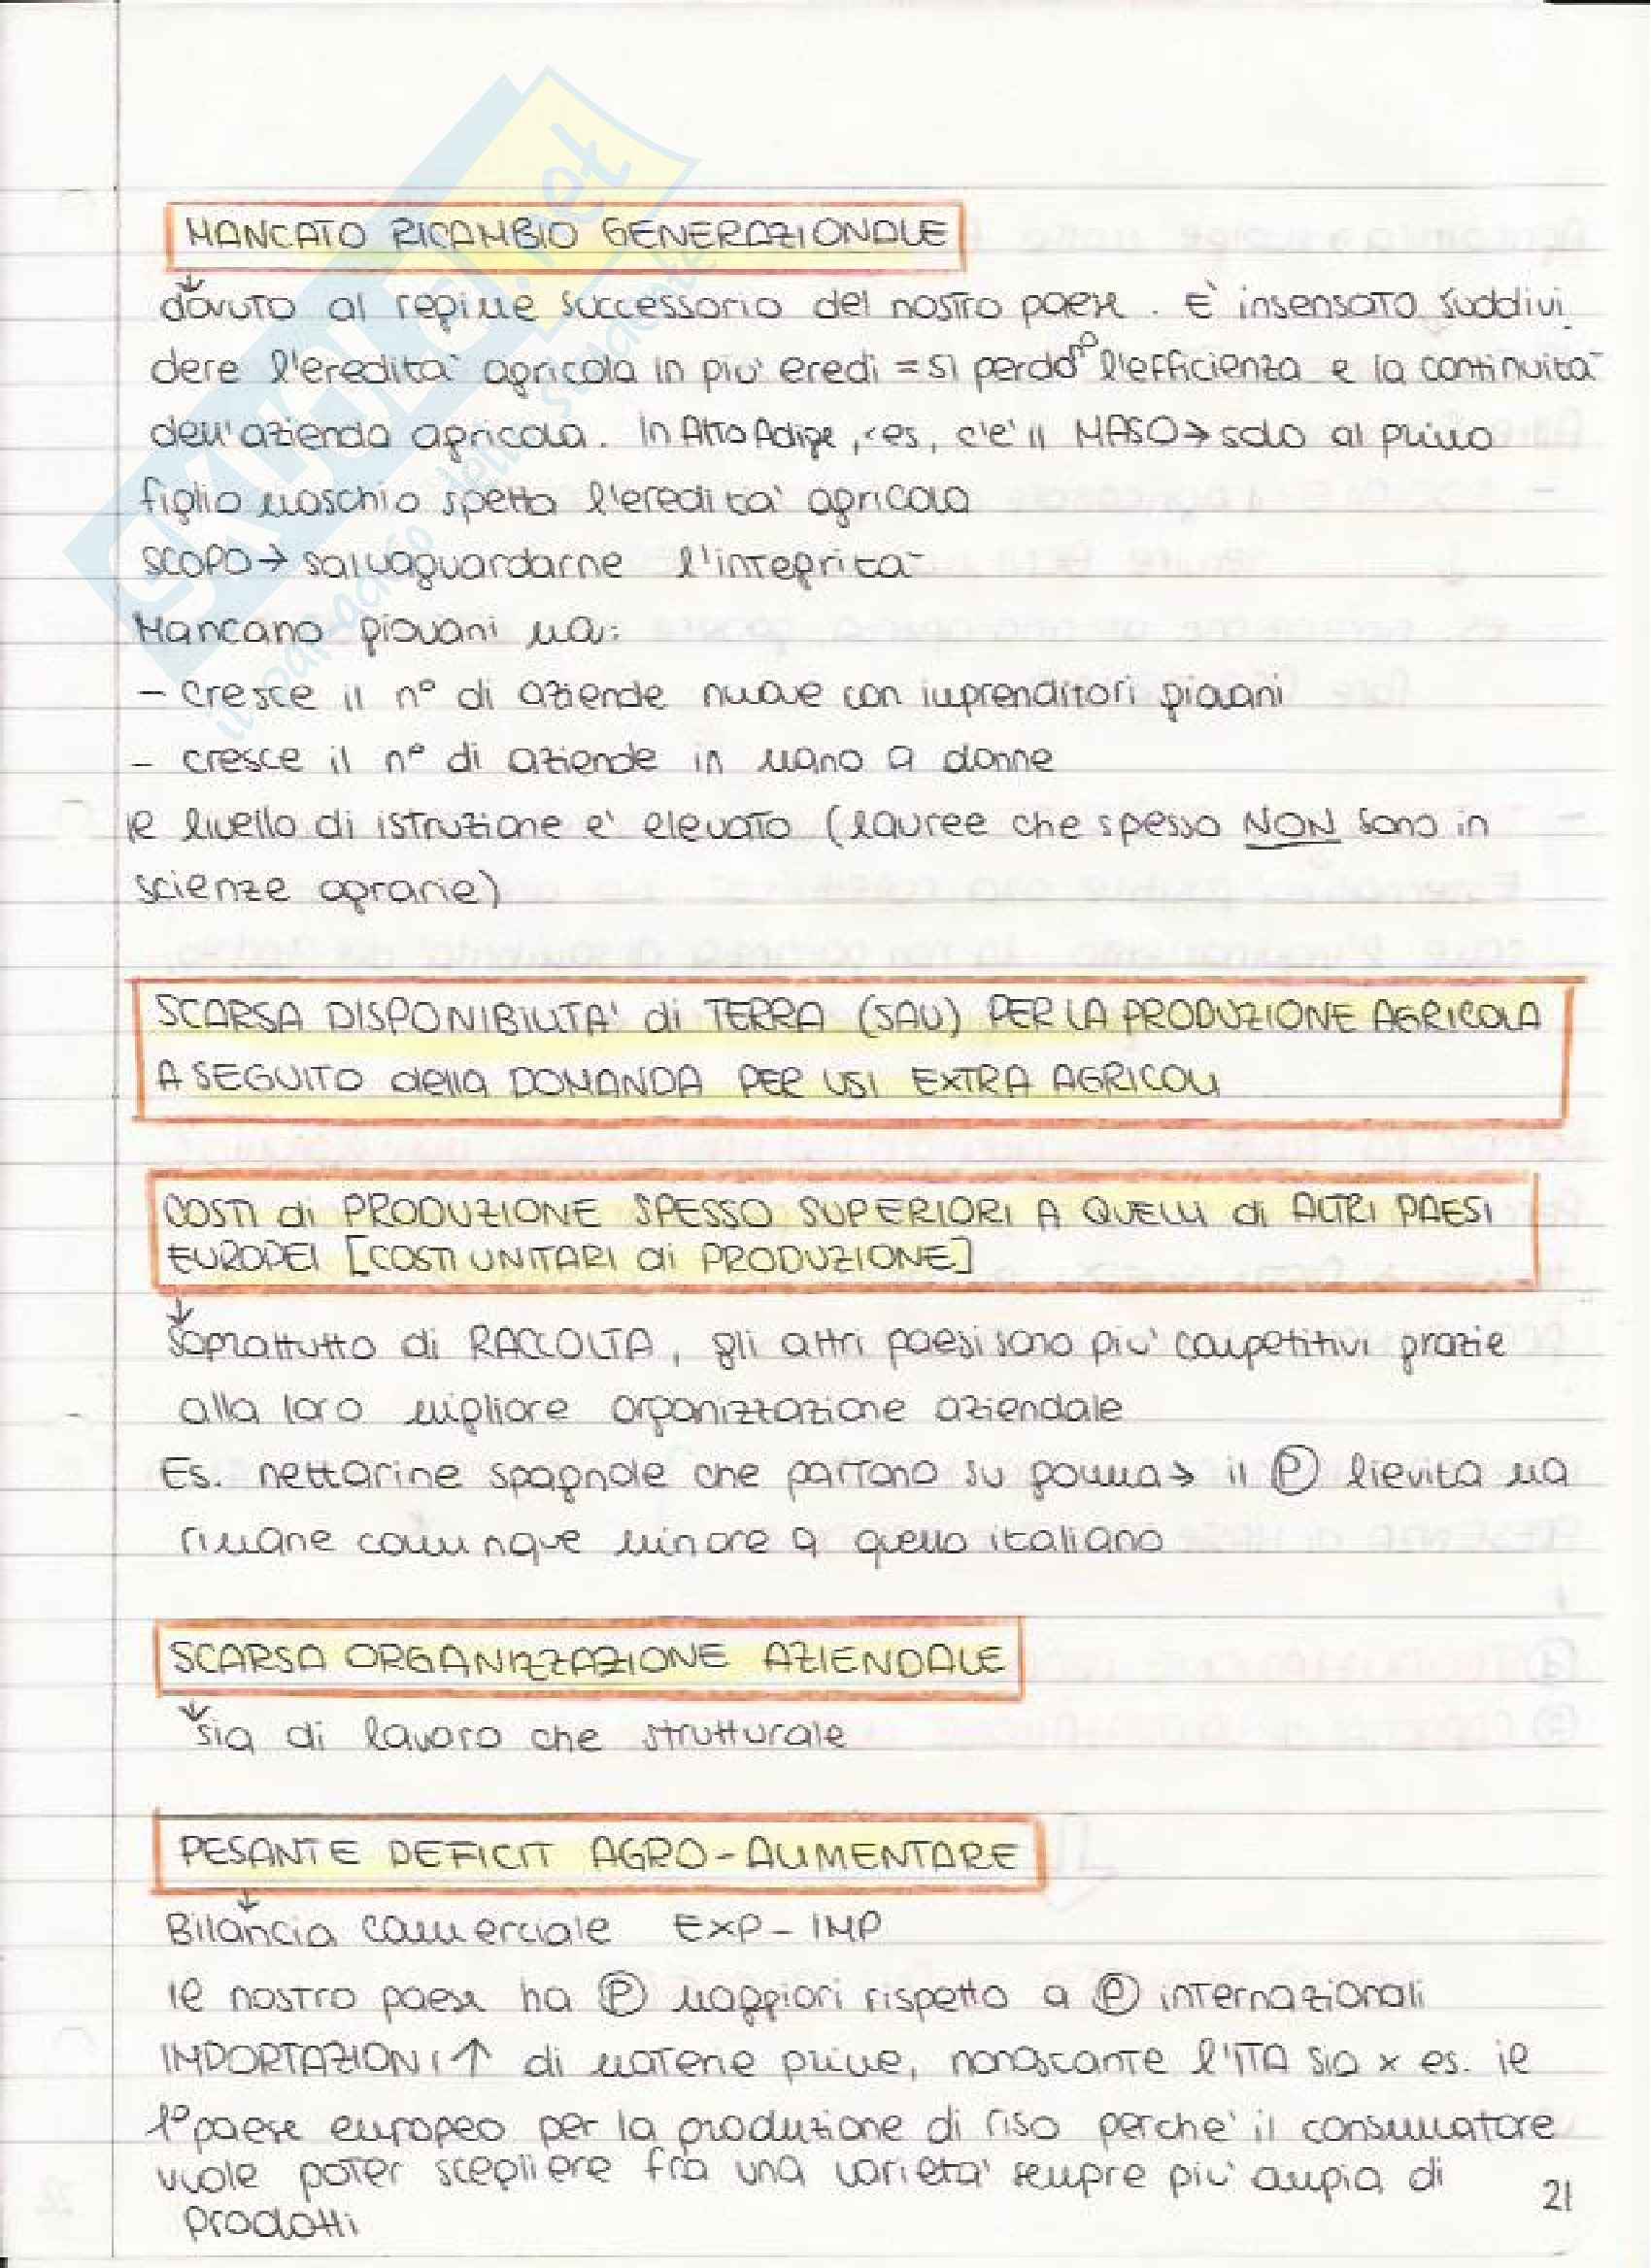 MANCATO RICAMBIO GENERAZIONALE
↓
dovuto al regime successorio del nostro paese. È insensato suddivi
dere l'eredità agricola in più eredi = si perdono l'efficienza e la continuità
dell'azienda agricola. In Alto Adige, x es, c'e' il MASO → solo al primo
figlio maschio spetta l'eredita' agricola
SCOPO → salvaguardarne l'integrità
Mancano giovani ma:
- cresce il n° di aziende nuove con imprenditori giovani
- cresce il n° di aziende in mano a donne
Il livello di istruzione e' elevato (lauree che spesso NON sono in
scienze agrarie)
SCARSA DISPONIBILITA' di TERRA (SAU) PER LA PRODUZIONE AGRICOLA
A SEGUITO della DOMANDA PER USI EXTRA AGRICOLI
COSTI di PRODUZIONE SPESSO SUPERIORI A QUELLI di ALTRI PAESI
EUROPEI [COSTI UNITARI di PRODUZIONE]
↓
soprattutto di RACCOLTA, gli altri paesi sono piu' competitivi grazie
alla loro migliore organizzazione aziendale
Es. nettarine spagnole che partono su gomma → il P lievita ma
rimane comunque minore a quello italiano
SCARSA ORGANIZZAZIONE AZIENDALE
↓
sia di lavoro che strutturale
PESANTE DEFICIT AGRO-ALIMENTARE
↓
Bilancia commerciale EXP - IMP
Il nostro paese ha P maggiori rispetto a P internazionali
IMPORTAZIONI ↑ di materie prime, nonostante l'ITA sia x es. il
1° paese europeo per la produzione di riso perche' il consumatore
vuole poter scegliere fra una varieta' sempre piu' ampia di
prodotti
21
SKUOLA.net
il paradiso dello studente